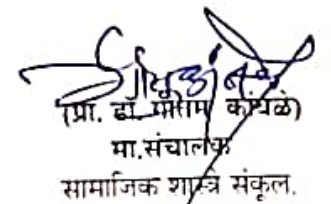 (प्रा. डॉ. गौतम कांबळे)
मा.संचालक
सामाजिक शास्त्रे संकूल.